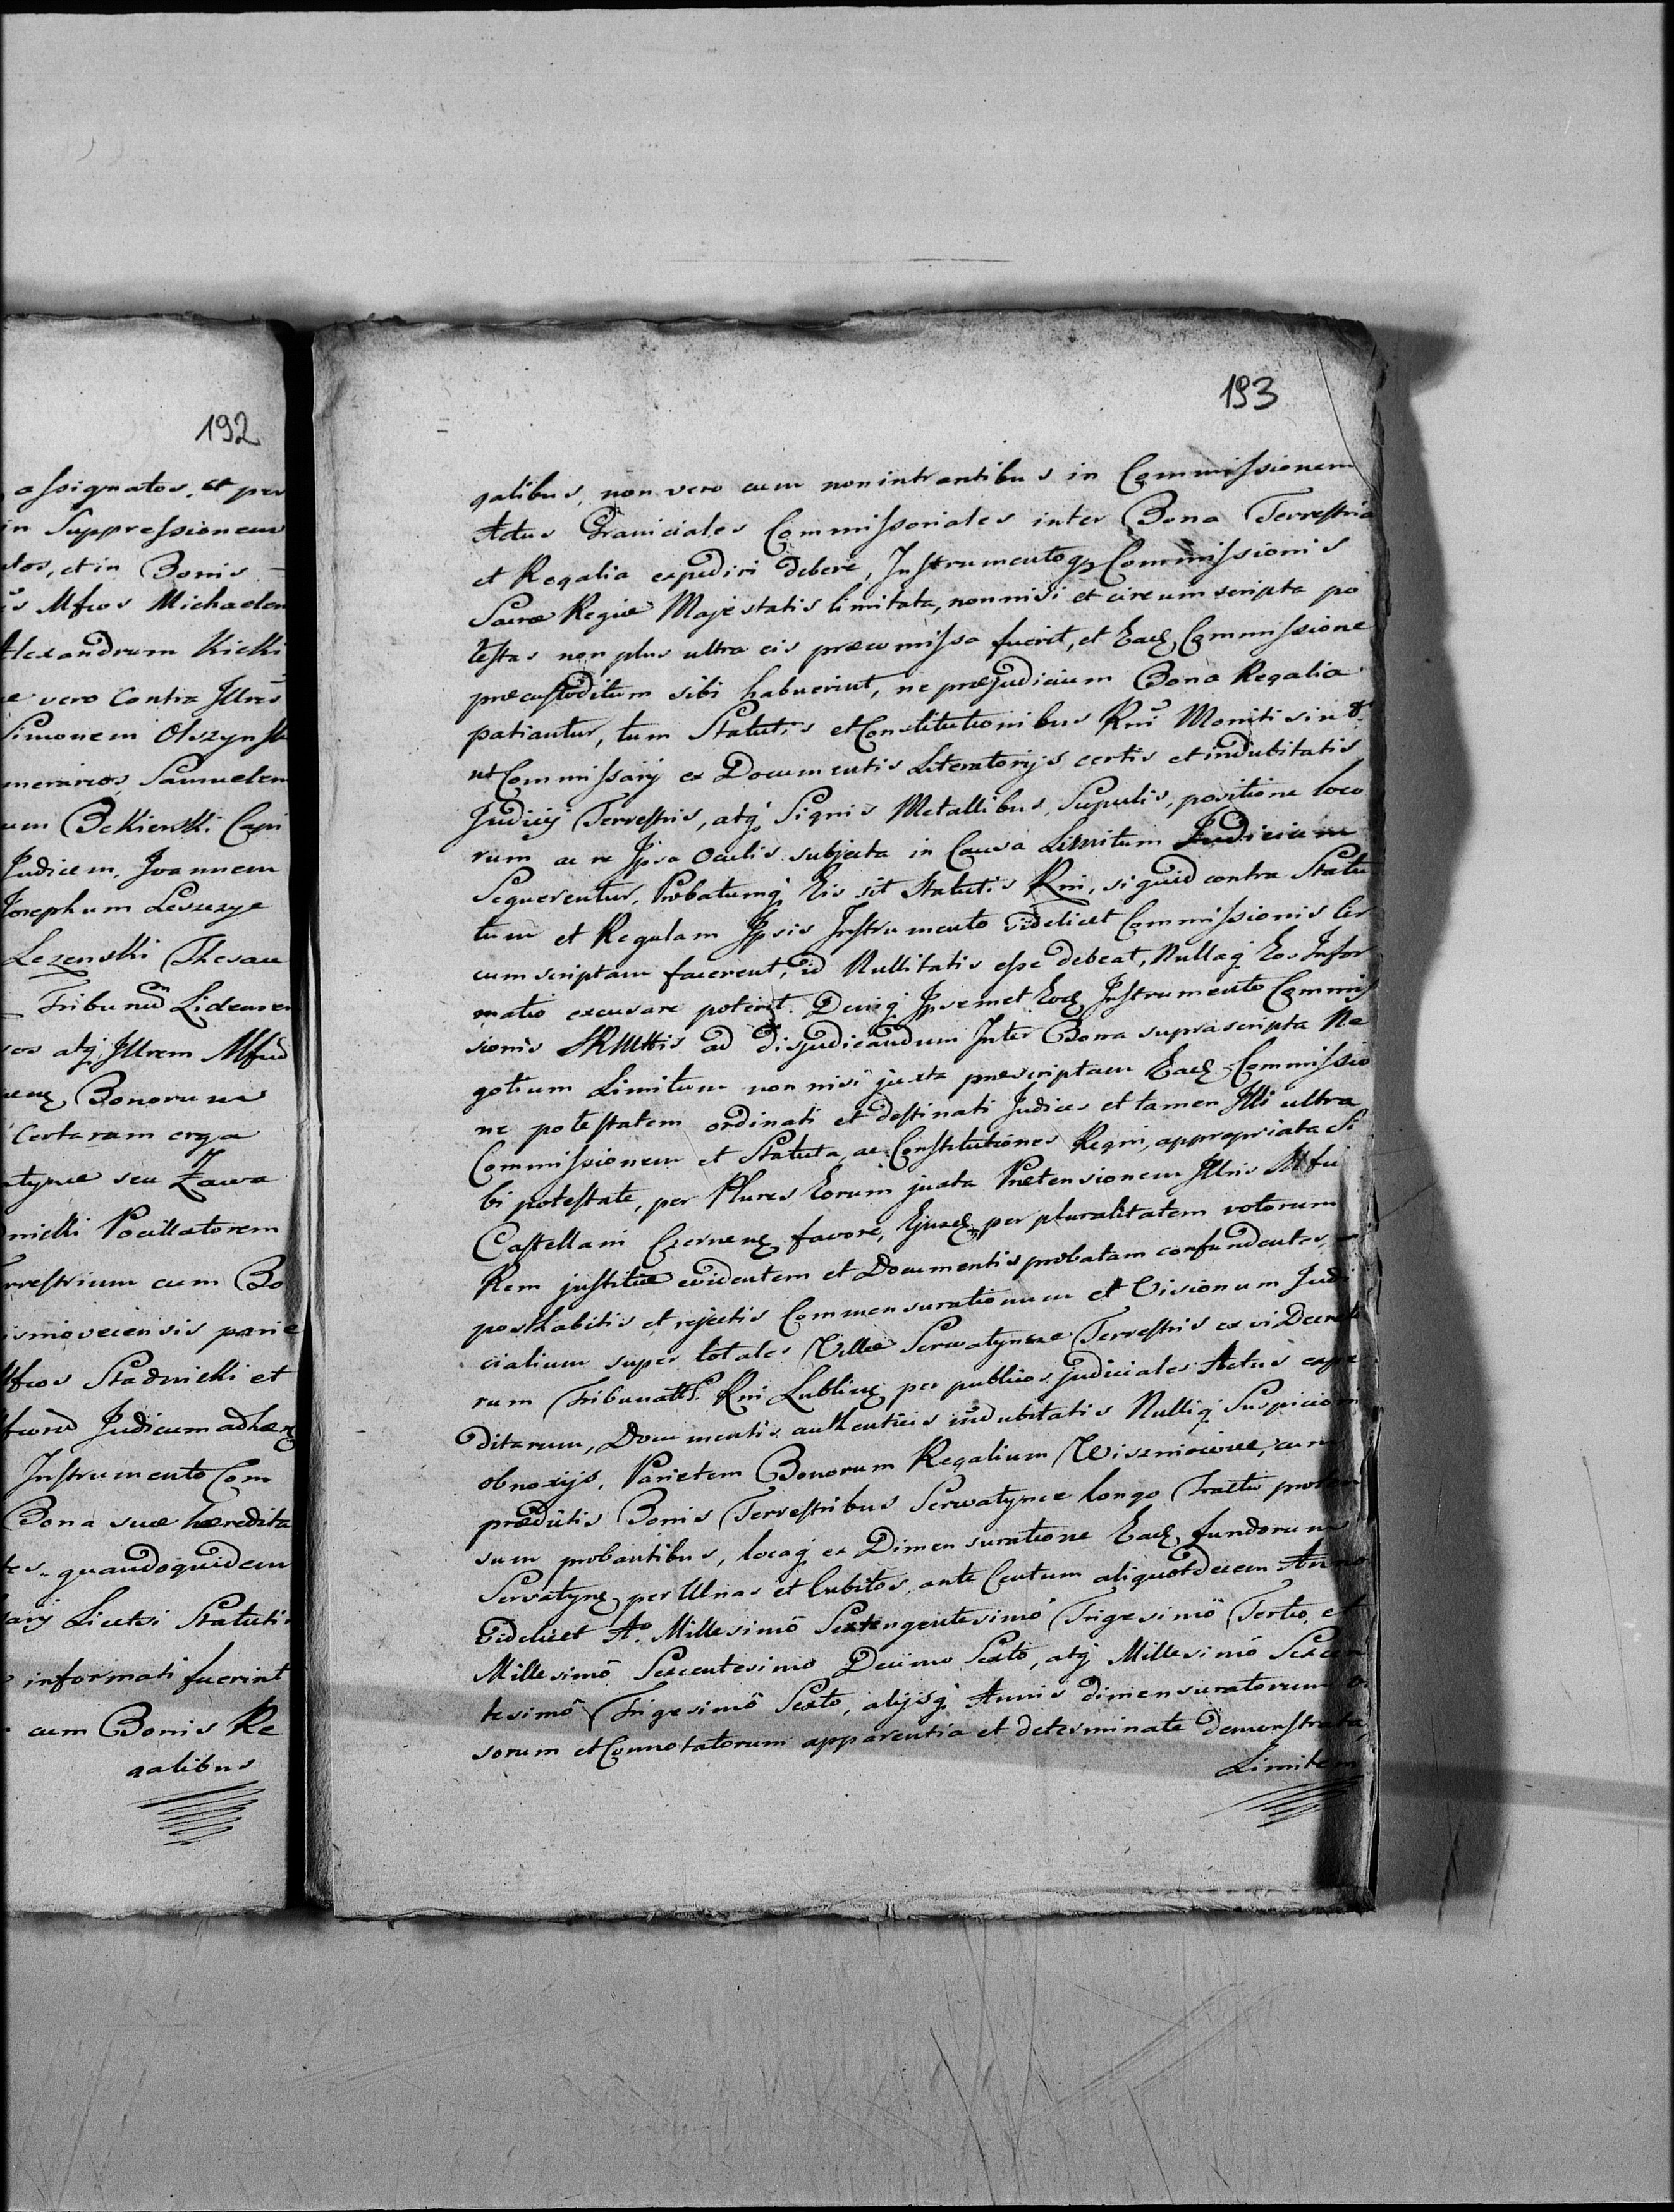 192
assignatos, et per
in Suppressionem
tos, et in Bonis
Mfcos Michaelem
Alexandrum Kicki
vero Contra Illres
Simonem Olszynsk
merarios, Samuelem
um Bekierski Capi
Judicem, Joannem
Josephum Leszczyc
Lezenski Thesau
Tribunū Lidensem
atq Illrem Mfcū
Bonorum
Certaram erga
tynce seu Zawa
nicki Pocillatorem
rrestrium cum Bo
ismioveciensis parie
Mfcos Stadnicki et
Judicum adhær
Instrumento Com
Bona suæ hæredita
quandoquidem
sarij Licetsi Statutis
informati fuerint
cum Bonis Re
galibus
193
galibus, non vero cum nonintrantibus in Commissionem
Actus Graniciales Commissoriales inter Bona Terrestria
et Regalia expediri debere, Instrumentoq Commissionis
Sacræ Regiæ Majestatis limitata, nonnisi et circumscripta po
testas non plus ultra eis præcomissa fuerit, et Eadᵉ Commissione
præcustoditum sibi habuerint, ne præjudicium Bona Regalia
patiantur, tum Statutis et Constitutionibus Rni Moniti sint
ut Commissarij ex Documentis Literatorijs certis et indubitatis
Judicij Terrestris, atq Signis Metallibus, Scupulis, positione loco
rum ac re Ipsa Oculis subjecta in Causa Limitum Judicium
Sequerentur, Probatumq Eis sit Statutis Rni, si quid contra Statu
tum et Regulam Ipsis Instrumento videlicet Commissionis Cir
cumscriptam facerent, id Nullitatis esse debeat, Nullaq Eos Infor
matio excusare poterit. Deniq Ipsemet Eodᵉ Instrumento Commis
sionis SRMttis ad disjudicandum Inter Bona suprascripta Ne
gotium Limitum non nisi juxta præscriptam Eadᵉ Commissio
ne potestatem ordinati et destinati Judices et tamen Illi ultra
Commissionem et Statuta, ac Constitutiones Regni, appropriata Si
bi potestate, per Plures Eorum juxta Prætensionem Illris Mfci
Castellani Czernenᵉ favore, Ejusdᵉ per pluralitatem votorum
Rem justitiæ evidentem et Documentis probatam confundentes,
posthabitis et rejectis Commensurationum et Visionum Judi
cialium super totales Villæ Serwatyncze Terrestris ex vi Decreto
rum Tribunatts Rni Lublinᵉ per publicos judiciales Actus expe
ditarum, Documentis authenticis indubitatis Nulliq Suspicioni
obnoxijs, Parietem Bonorum Regalium Wiszniovice, cum
prædictis Bonis Terrestribus Serwatynce longo Tractu proten
sum probantibus, locaq ex Dimensuratione Eadᵉ fundorum
Servatynᵉ per Ulnas et Cubitos, ante Centum aliquotdecem Annos
videlicet Aᵒ Millesimō Sextengentesimō Trigesimō Tertio, et
Millesimō Sexcentesimo Decimo Sexto, atq Millesimō Sexcen
tesimō Trigesimō Sexto, alijsq Annis dimensuratorum vi
sorum et Connotatorum apparentia et determinate demonstrata,
Limitem